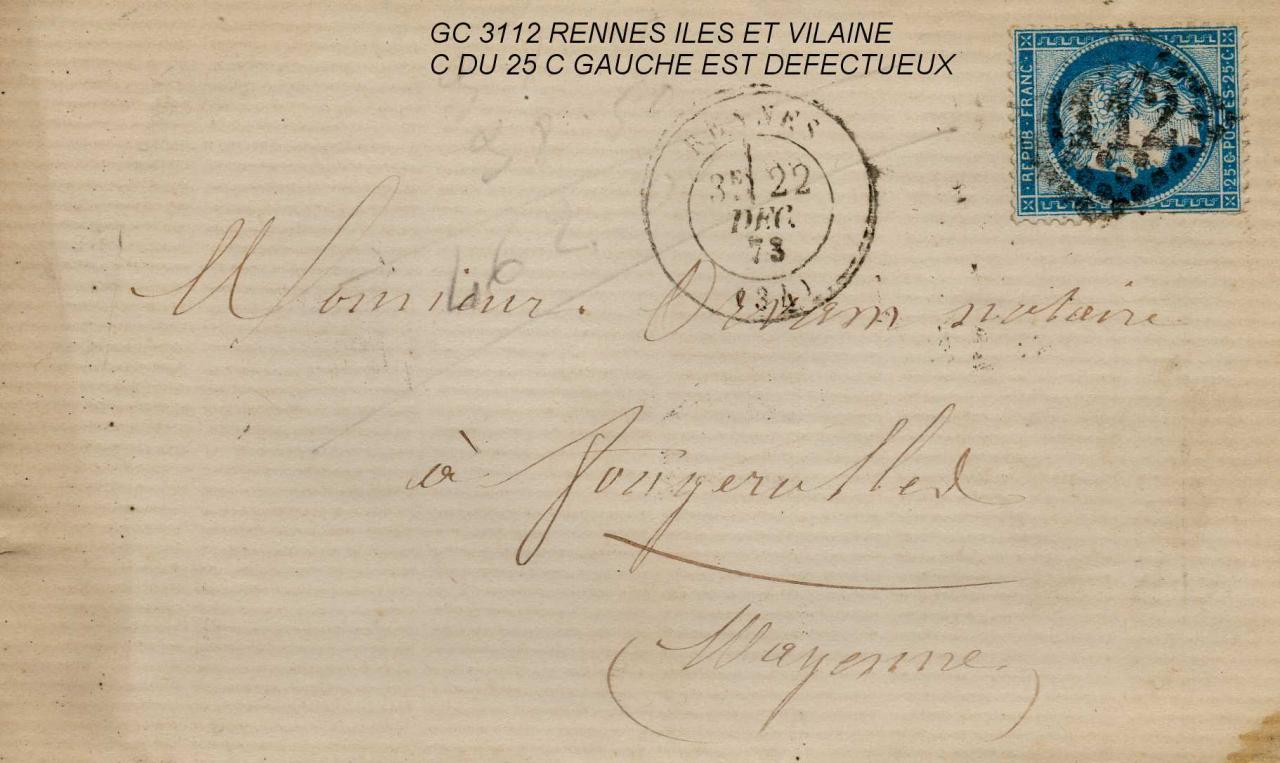 GC 3112 RENNES ILES ET VILAINE
C DU 25 C GAUCHE EST DEFECTUEUX
REPUB·FRANC·
112
25·C·POSTES·25·C·
RENNES
3E 22
DEC.
73
(34)
46 2.
Monsieur. notaire
à Fougerolles
(Mayenne)